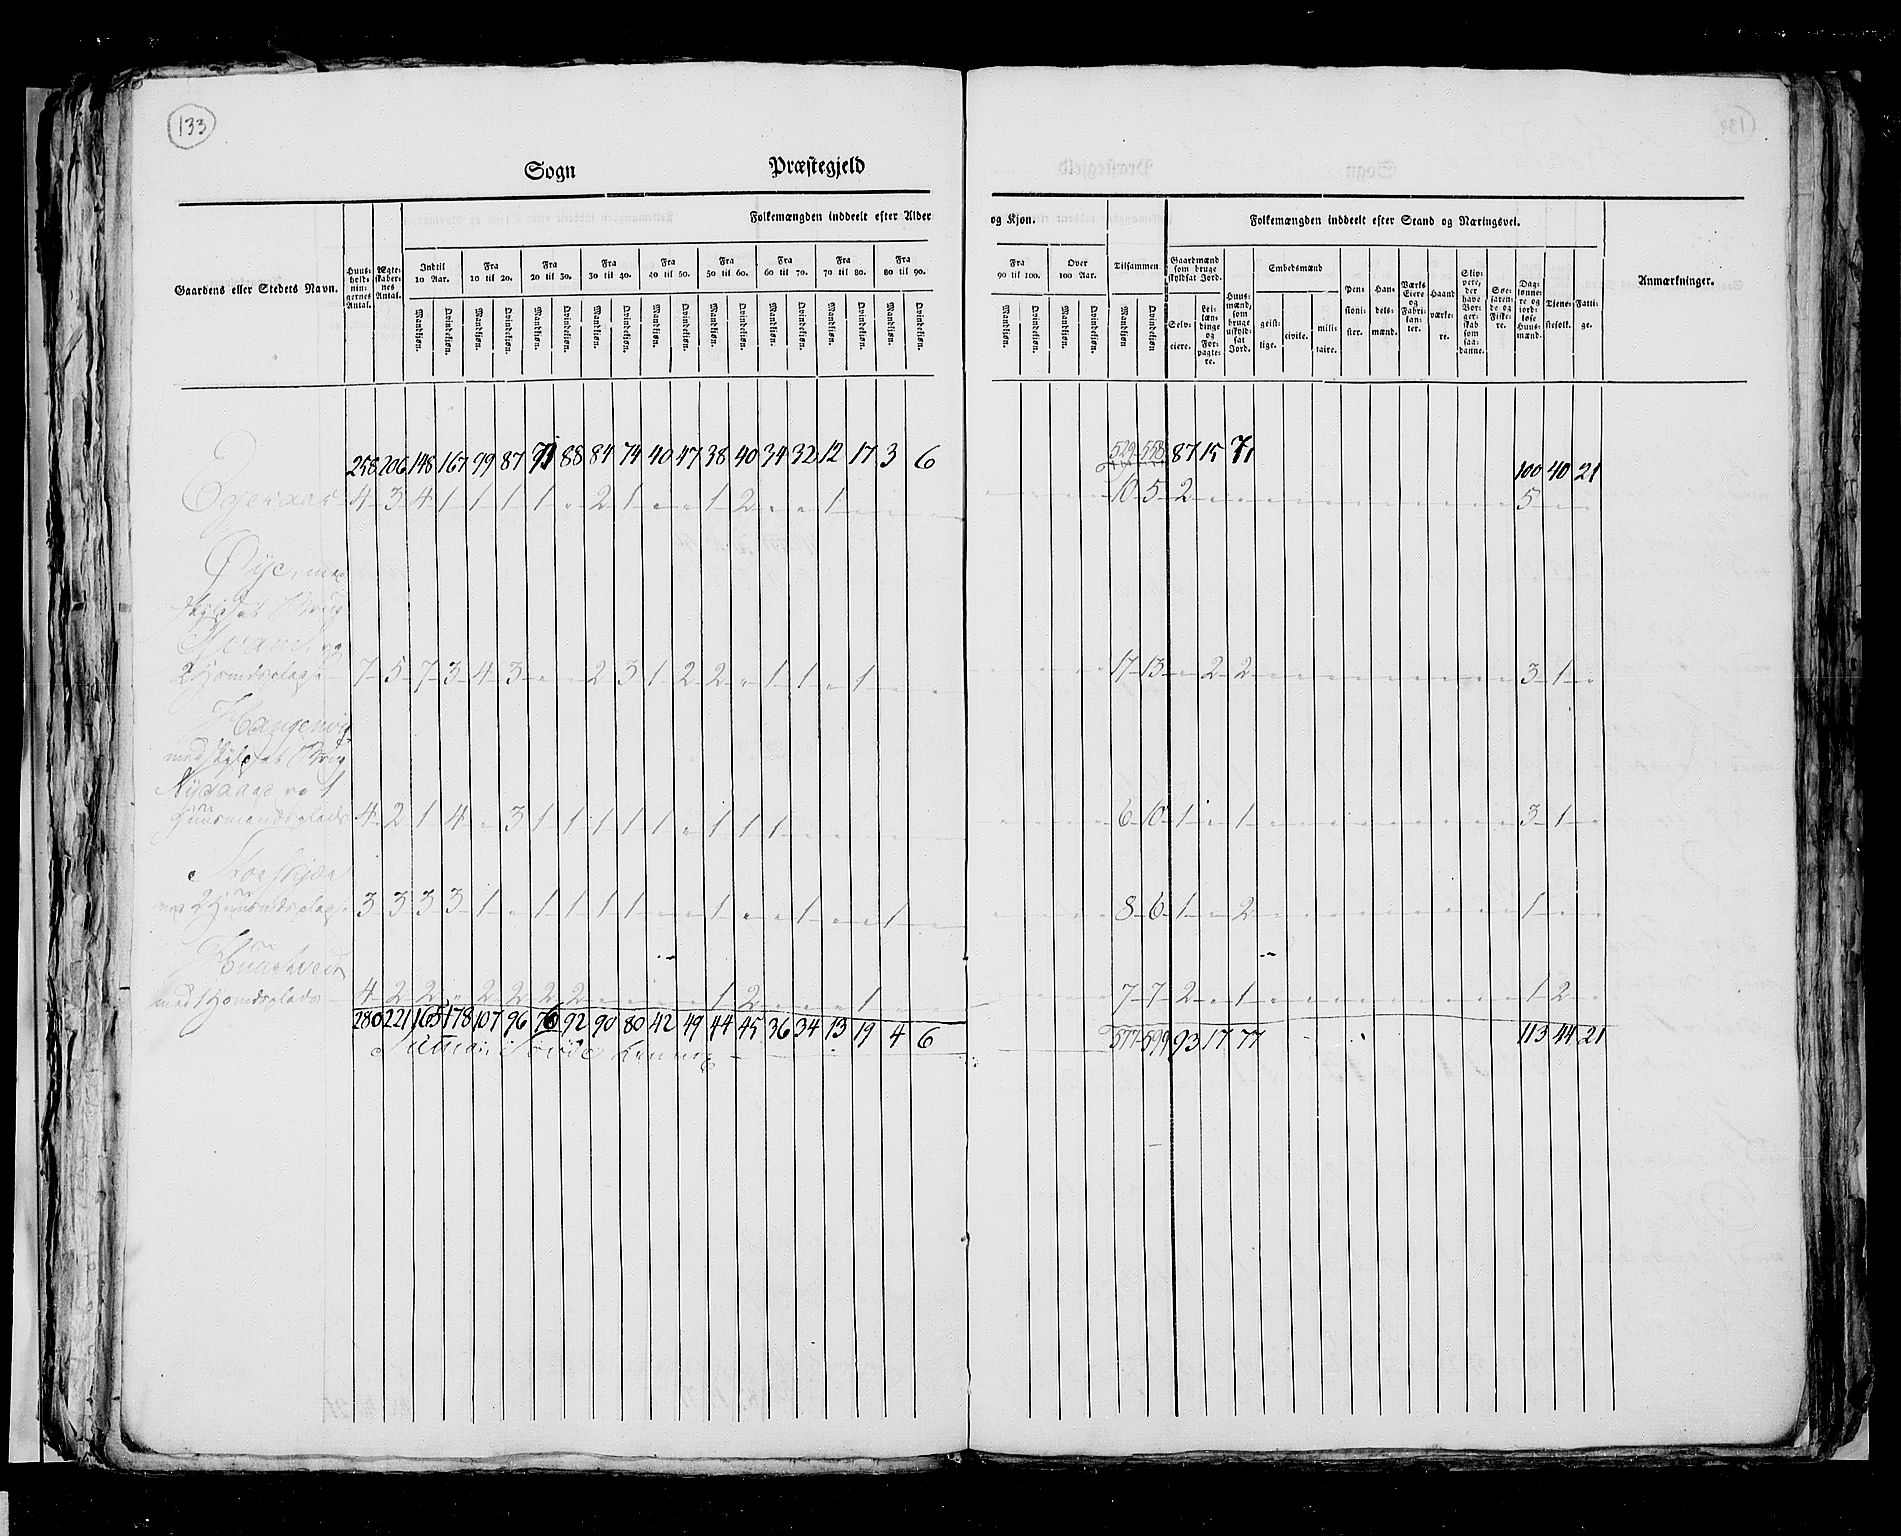 133
Sogn Præstegjeld
Gaardens eller Stedets Navn.
Huusholdningernes Antal.
Ægteskabernes Antal.
Folkemængden inddeelt efter Alder og Kjøn.
Indtil 10 Aar. Fra 10 til 20. Fra 20 til 30. Fra 30 til 40. Fra 40 til 50. Fra 50 til 60. Fra 60 til 70. Fra 70 til 80. Fra 80 til 90. Fra 90 til 100. Over 100 Aar. Tilsammen
Mandkjøn. Qvindekjøn. Mandkjøn. Qvindekjøn. Mandkjøn. Qvindekjøn. Mandkjøn. Qvindekjøn. Mandkjøn. Qvindekjøn. Mandkjøn. Qvindekjøn. Mandkjøn. Qvindekjøn. Mandkjøn. Qvindekjøn. Mandkjøn. Qvindekjøn. Mandkjøn. Qvindekjøn. Mandkjøn. Qvindekjøn. Mandkjøn Qvindekjøn
Folkemængden inddeelt efter Stand og Næringsvei.
Gaardmænd som bruge skyldsat Jord.
Selveiere.
Leilændinge og Forpagtere.
Huusmænd, som bruge uskyldsat Jord.
Embedsmænd
geistlige. civile. militaire.
Pensionister.
Handelsmænd.
Værks Eiere og Fabrikanter.
Haandværkere.
Skippere, der have Borgerskab som saadanne.
Søefarende og Fiskere.
Daglønnere og jordløse Huusmænd.
Tjenestefolk.
Fattige.
Anmærkninger.
258 206 148 167 99 87 71 88 84 74 40 47 38 40 34 32 12 17 3 6 529 558 87 15 71 100 40 21
4 3 4 1 1 1 1 " 2 1 " " 1 2 " " 1 10 5 2 5
Øÿe, med
skyldsat Brug
2 Hmdspladse 7 5 7 3 4 3 " " 2 3 1 2 2 " 1 1 " 1 17 13 " 2 2 3 1
med skyldsat Brug
Nÿgaard og 1
Huusmandsplads 4 2 1 4 " 3 1 1 1 1 1 " 1 1 1 6 10 1 " 1 3 1
med 2 Huusmdspladse 3 3 3 3 1 " 1 1 1 1 " " 1 " " 1 " " 1 8 6 1 " 2 1
med 1 Hmdsplads 4 2 2 " 2 2 2 2 " " " " 1 2 " " " 1 7 7 2 " 1 1 2
280 221 165 178 107 96 76 92 90 80 42 49 44 45 36 34 13 19 4 6 577 599 93 17 77 113 44 21